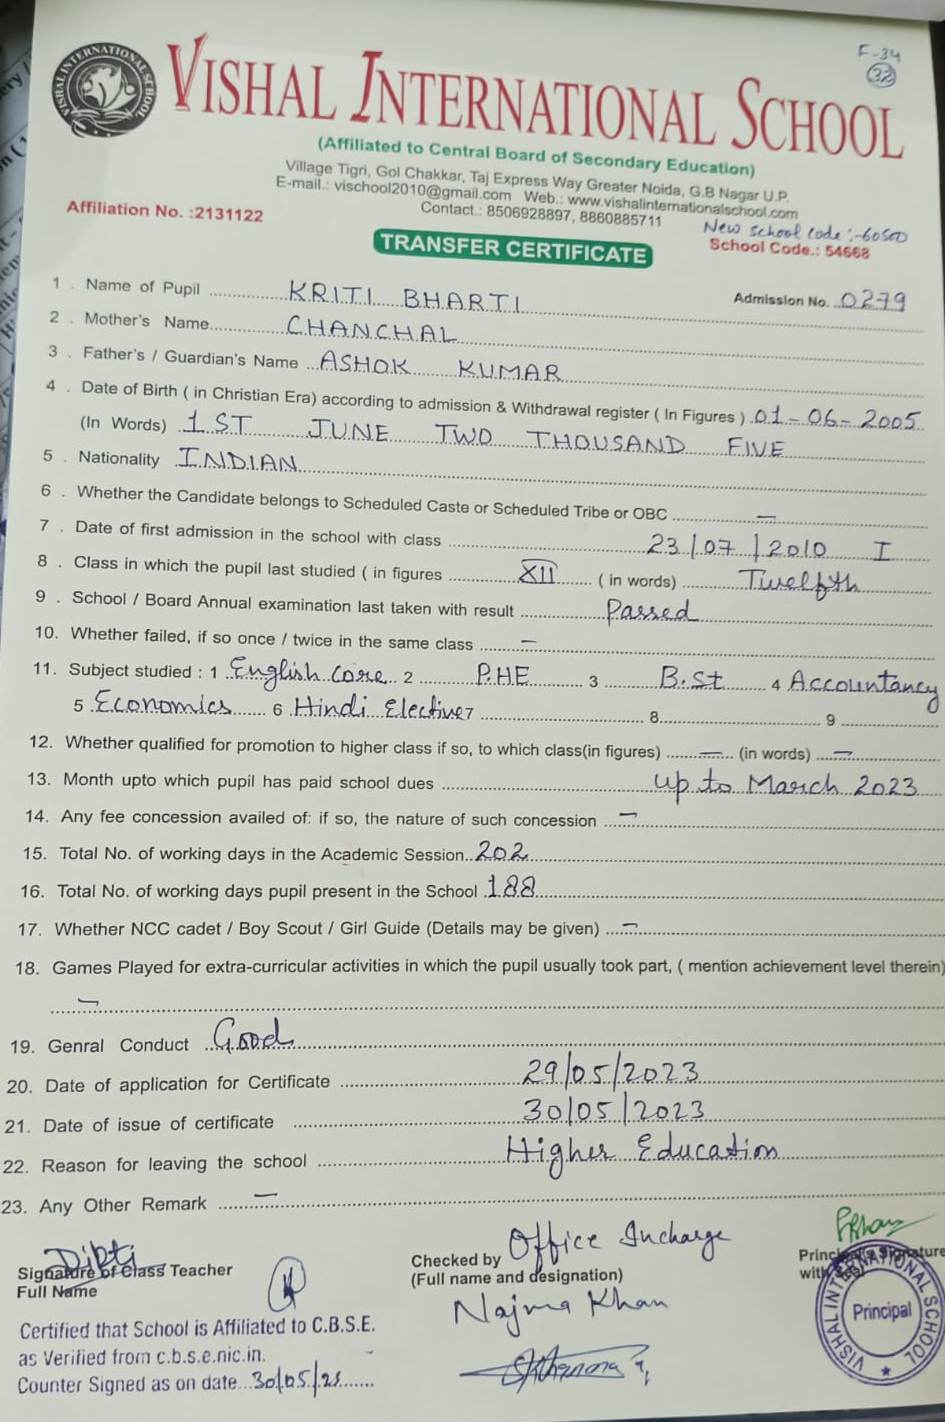 F-34
32
VISHAL INTERNATIONAL SCHOOL
VISHAL INTERNATIONAL SCHOOL
(Affiliated to Central Board of Secondary Education)
Village Tigri, Gol Chakkar, Taj Express Way Greater Noida, G.B Nagar U.P.
E-mail.: vischool2010@gmail.com Web.: www.vishalinternationalschool.com
Affiliation No. :2131122 Contact.: 8506928897, 8860885711
New School Code :-60500
TRANSFER CERTIFICATE School Code.: 54668
1 . Name of Pupil KRITI BHARTI Admission No. 0279
2 . Mother's Name CHANCHAL
3 . Father's / Guardian's Name ASHOK KUMAR
4 . Date of Birth ( in Christian Era) according to admission & Withdrawal register ( In Figures ) 01-06-2005
(In Words) 1 ST JUNE TWO THOUSAND FIVE
5 . Nationality INDIAN
6 . Whether the Candidate belongs to Scheduled Caste or Scheduled Tribe or OBC —
7 . Date of first admission in the school with class 23/07/2010 I
8 . Class in which the pupil last studied ( in figures XII ( in words) Twelfth
9 . School / Board Annual examination last taken with result Passed
10. Whether failed, if so once / twice in the same class —
11. Subject studied : 1 English Core 2 P.HE 3 B.St 4 Accountancy
5 Economics 6 Hindi Elective 7 8 9
12. Whether qualified for promotion to higher class if so, to which class(in figures) — (in words) —
13. Month upto which pupil has paid school dues up to March 2023
14. Any fee concession availed of: if so, the nature of such concession —
15. Total No. of working days in the Academic Session.. 202
16. Total No. of working days pupil present in the School 188
17. Whether NCC cadet / Boy Scout / Girl Guide (Details may be given) —
18. Games Played for extra-curricular activities in which the pupil usually took part, ( mention achievement level therein)
—
19. Genral Conduct Good
20. Date of application for Certificate 29/05/2023
21. Date of issue of certificate 30/05/2023
22. Reason for leaving the school Higher Education
23. Any Other Remark —
Dipti
Signature of Class Teacher
Full Name
Checked by Office Incharge
(Full name and designation)
Najma Khan
Principal's Signature
with Seal
VISHAL INTERNATIONAL SCHOOL
Principal
Certified that School is Affiliated to C.B.S.E.
as Verified from c.b.s.e.nic.in.
Counter Signed as on date...30/05/23